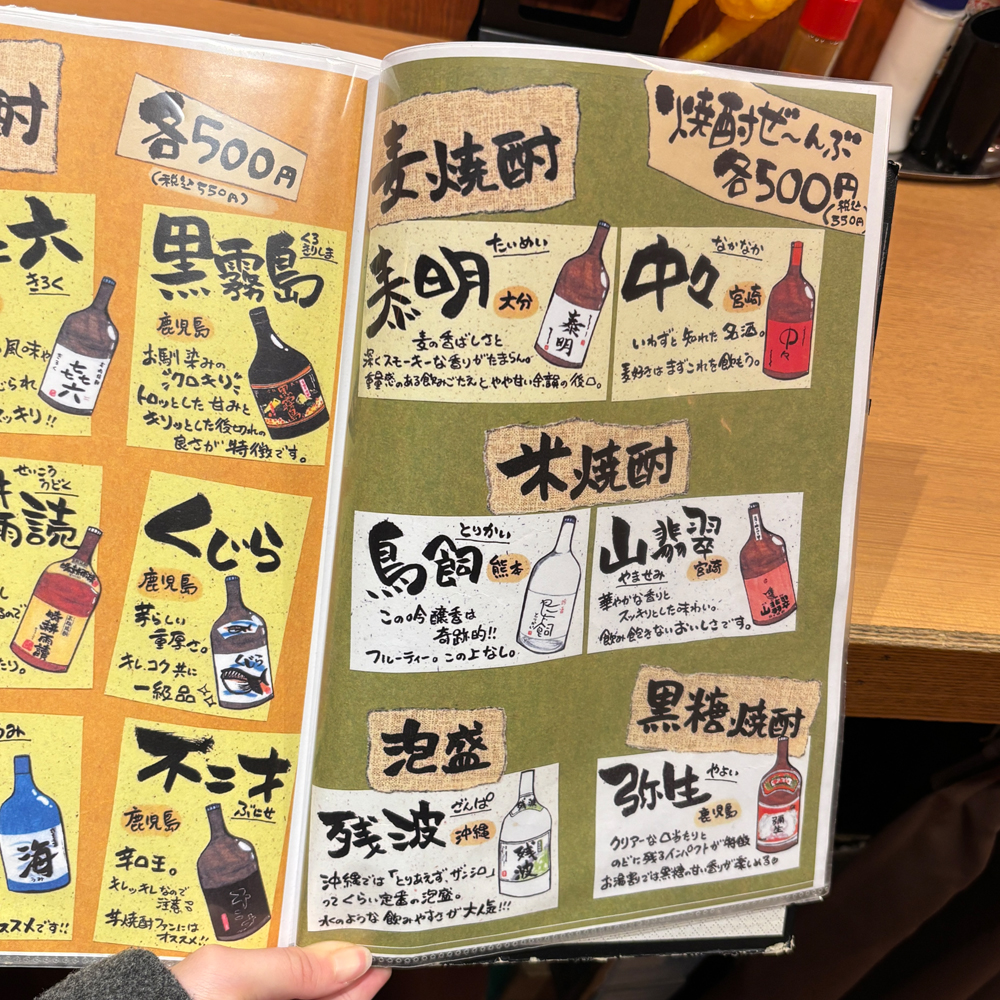 酎
各500円
(税込550円)
六
きろく
風味や
㐂六
スッキリ!!
黒霧島
くろきりしま
鹿児島
お馴染みの
"クロキリ"
トロッとした甘みと
キリッとした後切れの
良さが特徴です。
黒霧島
せいこう
うどく
雨読
晴耕雨讀
くじら
鹿児島
芋らしい
重厚さ。
キレコク共に
一級品
くじら
うみ
海
うみ
ススメです!!
不二才
ぶにせ
鹿児島
辛口王。
キレッキレなので
注意
芋焼酎ファンには
オススメ!!
不二才
麦焼酎
焼酎ぜ〜んぶ
各500円
(税込550円)
泰明
たいめい
大分
麦の香ばしさと
深くスモーキーな香りがたまらん。
重量感のある飲みごたえとやや甘い余韻の後口。
泰明
中々
なかなか
宮崎
いわずと知れた名酒。
麦好きはまずこれを飲もう。
中々
米焼酎
鳥飼
とりかい
熊本
この吟醸香は
奇跡的!!
フルーティー。この上なし。
鳥飼
山翡翠
やませみ
宮崎
華やかな香りと
スッキリとした味わい。
飲み飽きないおいしさです。
山翡翠
泡盛
残波
ざんぱ
沖縄
沖縄では「とりあえず、ザンシロ」
ってくらい定番の泡盛。
水のような飲みやすさが大人気!!!
残波
黒糖焼酎
弥生
やよい
鹿児島
クリアーな口当たりと
のどに残るインパクトが特徴
お湯割では黒糖の甘い香りが楽しめる
弥生